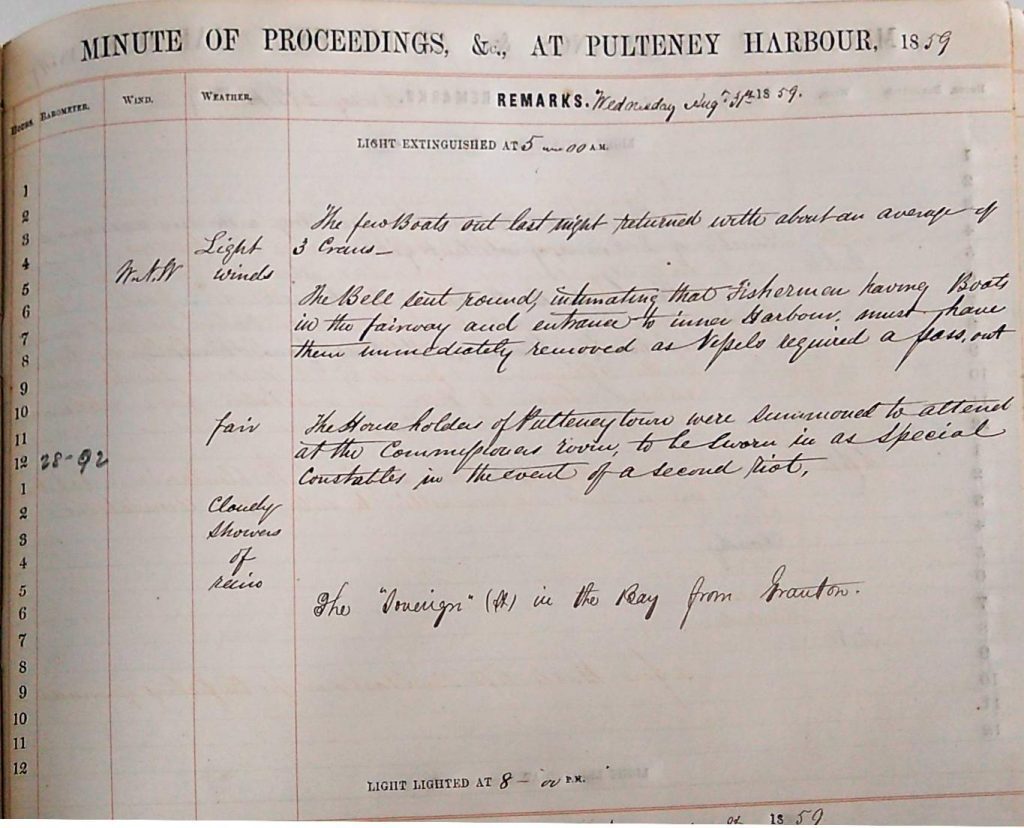 MINUTE OF PROCEEDINGS, &c., AT PULTENEY HARBOUR, 1859
HOURS. BAROMETER. WIND. WEATHER. REMARKS. Wednesday Augt 1859.
LIGHT EXTINGUISHED AT 5 00 A.M.
1
2
The few Boats out last night returned with about an average of
3
Light 3 Crans
4
W.N.W winds
5
The Bell sent round, intimating that Fishermen having Boats
6
in the fairway and entrance to inner Harbour, must have
7
them immediately removed as Vessels required a pass out
8
9
10
fair The Householders of Pulteneytown were summoned to attend
11
at the Commissioners room, to be sworn in as Special
12 28-92
Constables in the event of a second riot,
1
Cloudy
2
Showers
3
of
4
rain
5
The "Soverign" (St) in the Bay from Granton.
6
7
8
9
10
11
12
LIGHT LIGHTED AT 8 - 00 P.M.
1859